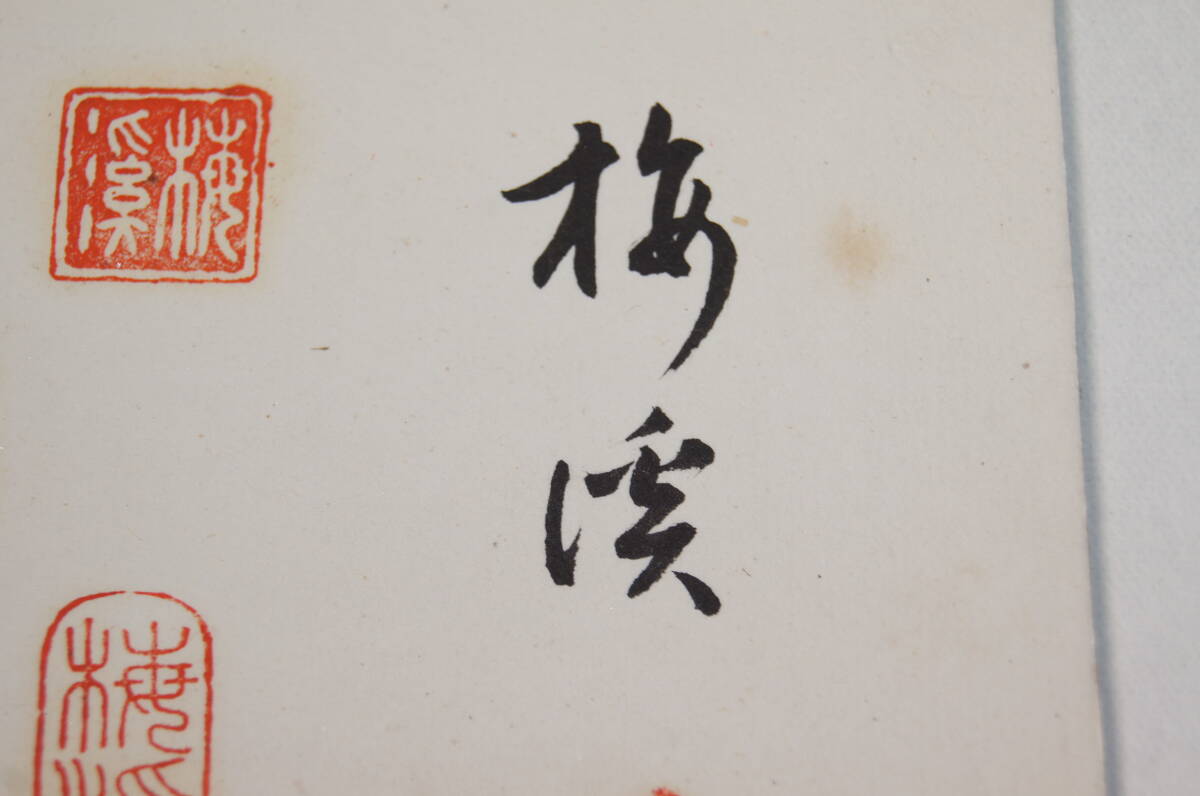 梅溪
梅溪
梅